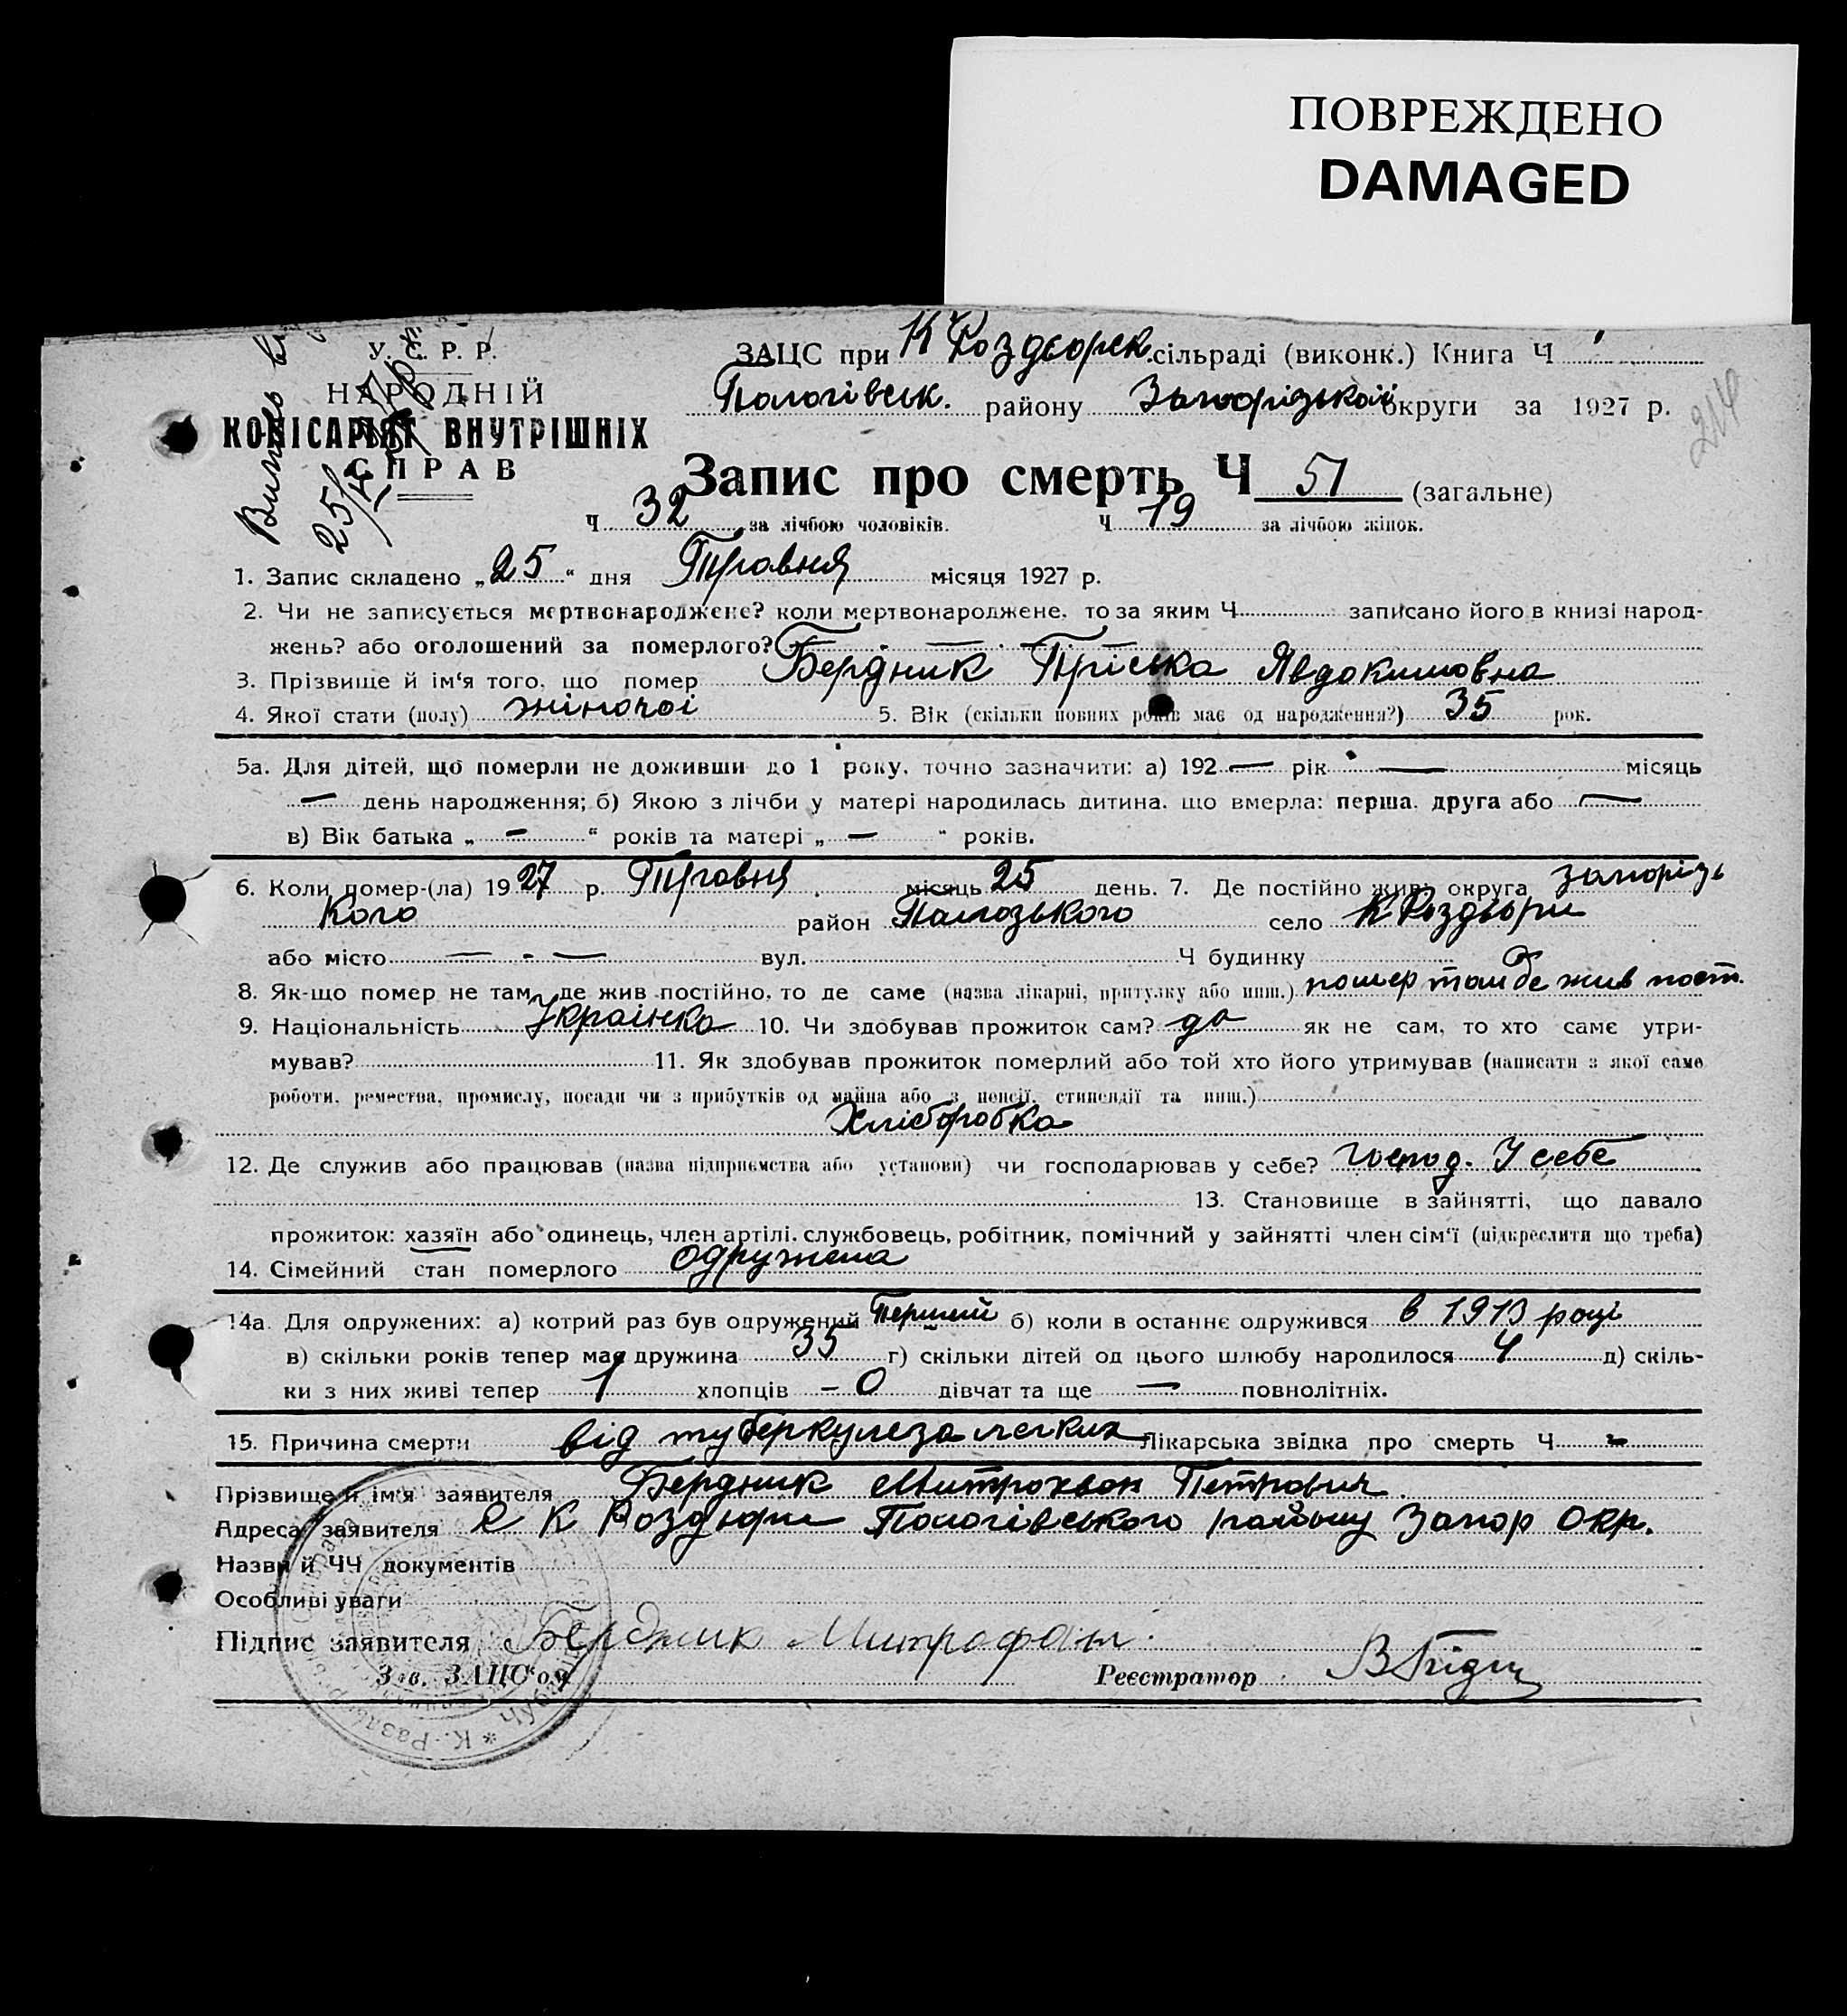 ПОВРЕЖДЕНО
DAMAGED
У. С. Р. Р.
НАРОДНІЙ
КОМІСАРІЯТ ВНУТРІШНІХ
СПРАВ
ЗАЦС при К Роздорск. сільраді (виконк.) Книга Ч
Пологівськ. району Запорізької округи за 1927 р.
214
Запис про смерть Ч 51 (загальне)
Ч 32 за лічбою чоловіків. Ч 19 за лічбою жінок.
1. Запис складено „25“ дня Травня місяця 1927 р.
2. Чи не записується мертвонароджене? коли мертвонароджене, то за яким Ч записано його в книзі народ-
жень? або оголошений за померлого? — — —
3. Прізвище й ім‘я того, що помер Бердник Пріська Явдокимовна
4. Якої стати (полу) жіночої 5. Вік (скільки повних років має од народження?) 35 рок.
5а. Для дітей, що померли не доживши до 1 року, точно зазначити: а) 192 — рік — місяць
— день народження; б) Якою з лічби у матері народилась дитина, що вмерла: перша, друга або —
в) Вік батька „ — “ років та матері „ — “ років.
6. Коли помер-(ла) 1927 р. Травня місяць 25 день. 7. Де постійно жив: округа Запорізь
кого район Пологозького село К Роздори
або місто — - — вул. Ч будинку
8. Як-що помер не там, де жив постійно, то де саме (назва лікарні, притулку або инш.) помер там де жив пост.
9. Національність Українка 10. Чи здобував прожиток сам? да як не сам, то хто саме утри-
мував? 11. Як здобував прожиток померлий або той хто його утримував (написати з якої саме
роботи, ремества, промислу, посади чи з прибутків од майна або з пенсії, стипендії та инш.)
Хліборобка
12. Де служив або працював (назва підприємства або установи) чи господарював у себе? Господ. У себе
13. Становище в зайнятті, що давало
прожиток: хазяїн або одинець, член артілі, службовець, робітник, помічний у зайнятті член сім‘ї (підкреслити що треба)
14. Сімейний стан померлого одружена
14а. Для одружених: а) котрий раз був одружений Перший б) коли в останнє одружився в 1913 році
в) скільки років тепер має дружина 35 г) скільки дітей од цього шлюбу народилося 4 д) скіль-
ки з них живі тепер 1 хлопців – 0 дівчат та ще — повнолітніх.
15. Причина смерти від туберкулеза легких Лікарська звідка про смерть Ч -
Прізвище й ім‘я заявителя Бердник Митрохван Петрович.
Адреса заявителя С К Роздори Пологівського району Запор Окр.
Назви й ЧЧ документів
Особливі уваги
Підпис заявителя Бердник Митрофан.
Зав. ЗАЦС‘ом Реєстратор